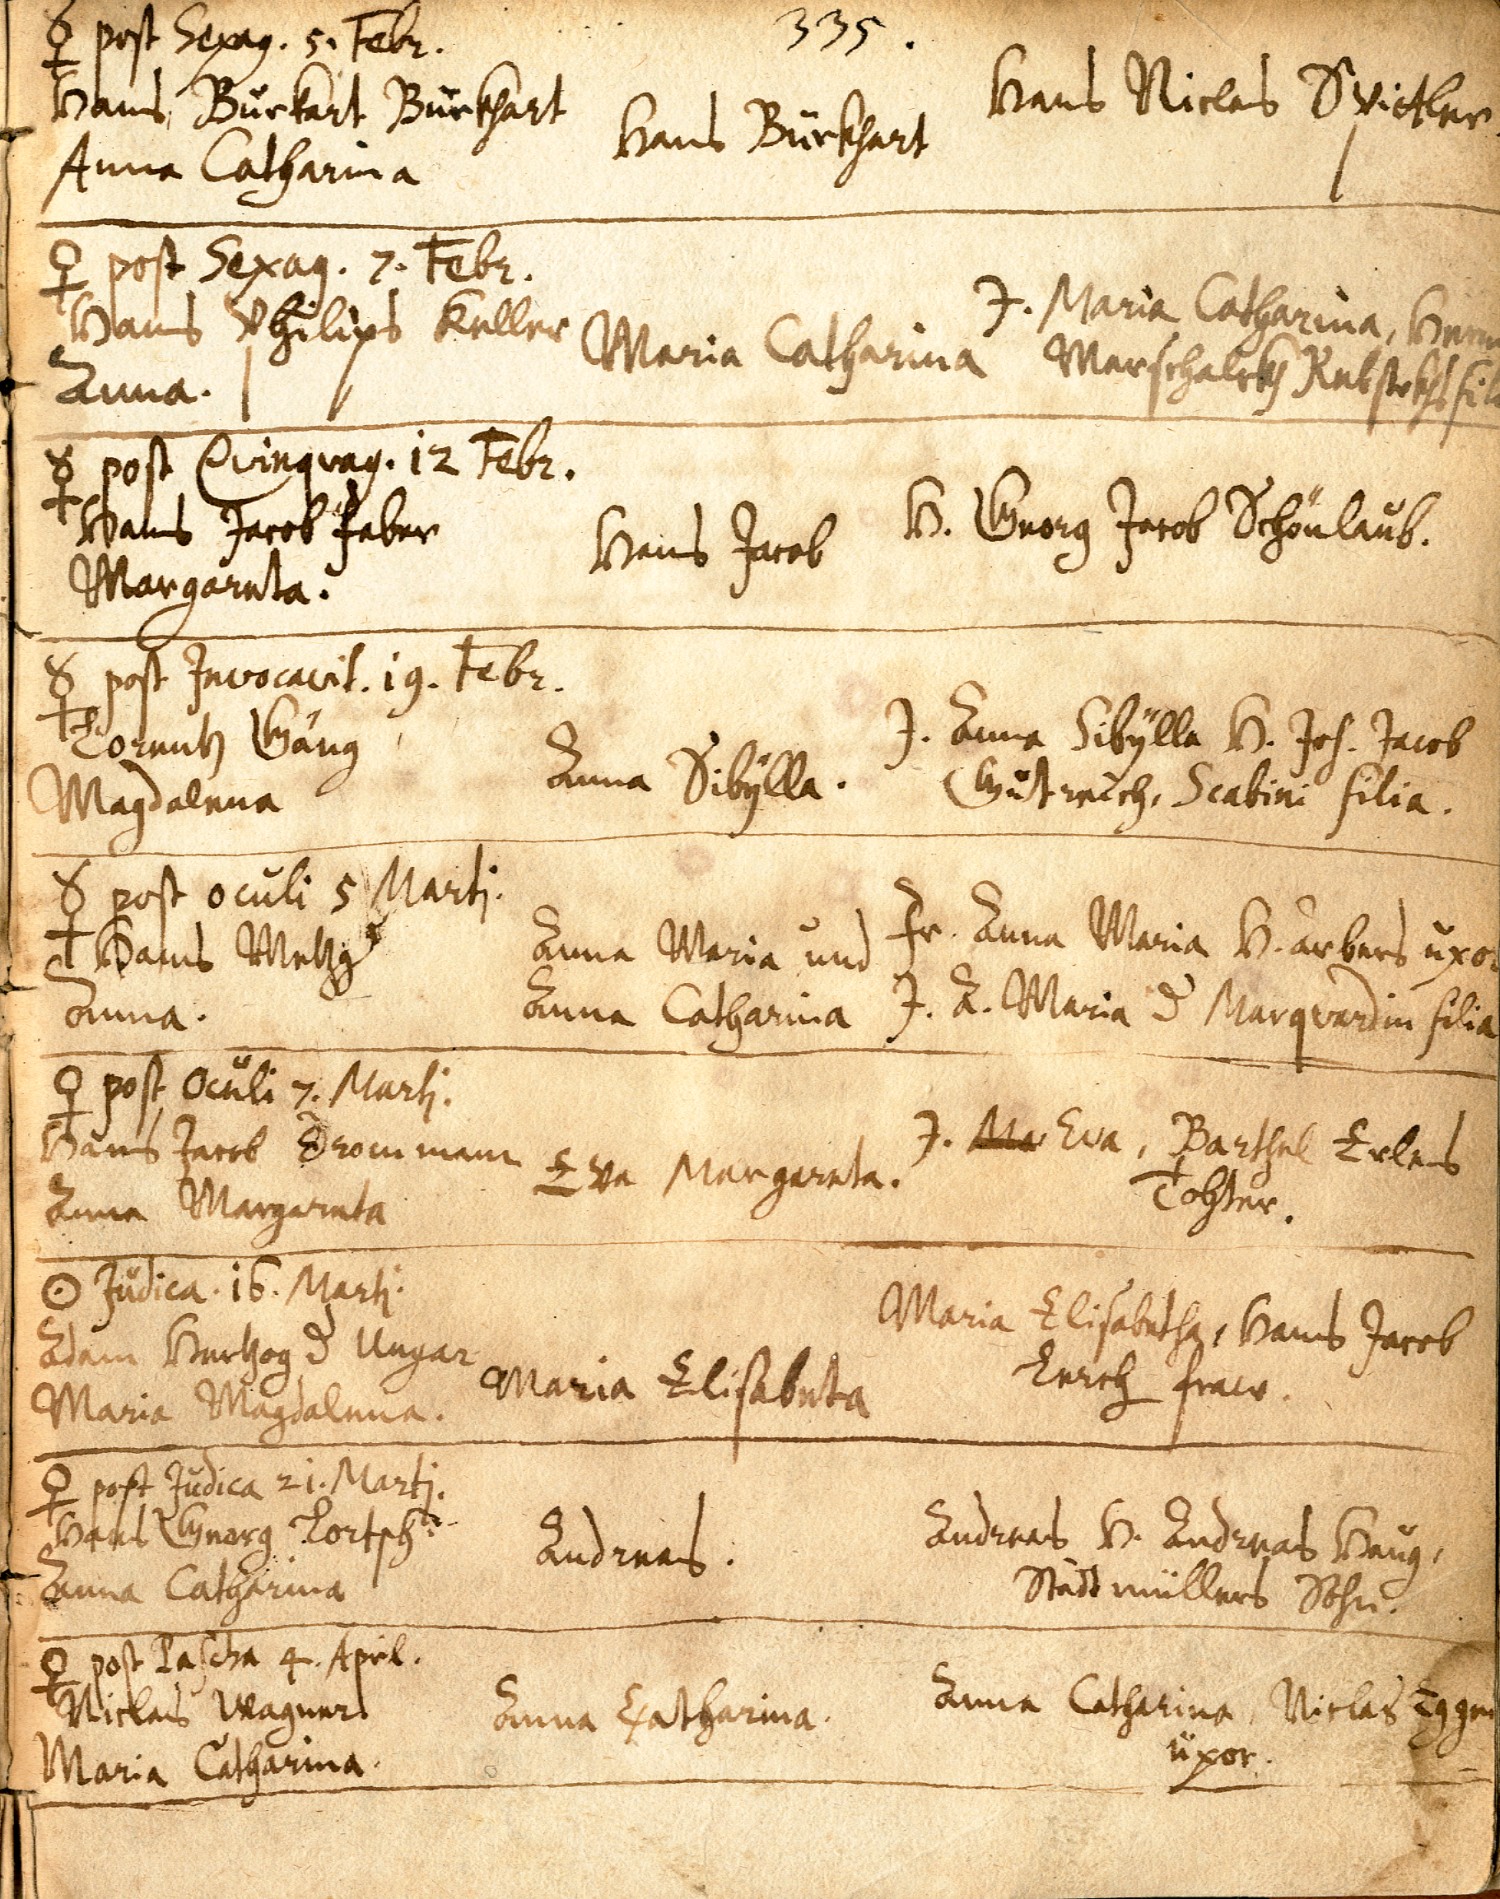 335.
☿ post Sexag. 5. Febr.
Hans Burkart Burkhart
Anna Catharina
Hans Burkhart
Hans Niclas
♀ post Sexag. 7. Febr.
Hans Philips Keller
Anna.
Maria Catharina
J. Maria Catharina, Herrn
Marschalcks
☿ post Qvinqvag. 12 Febr.
Hans Jacob Faber
Margareta.
Hans Jacob
H. Georg Jacob Schönlaub.
☿ post Invocavit. 19. Febr.
Lorentz Gäng
Magdalena
Anna Sibÿlla.
J. Anna Sibÿlla H. Joh. Jacob
Gutreich, Scabini filia.
☿ post Oculi 5 Martj.
Hans Metzg
Anna.
Anna Maria und
Anna Catharina
Fr. Anna Maria H. uxor
J. A. Maria Marqvardin filia
♀ post Oculi 7. Martj.
Hans Jacob Trommann
Anna Margareta
Eva Margareta.
J. Eva, Barthel Erlens
Tochter.
☉ Judica. 16. Martj.
Adam Hertzog Ungar
Maria Magdalena.
Maria Elisabeta
Maria Elisabetha, Hans Jacob
Lerch fraw.
♀ post Judica 21. Martj.
Hans Georg
Anna Catharina
Andreas.
Andreas H. Andreas Haug,
Stadtmüllers Sohn.
♀ post Pascha 4. ApRl.
Niclas Wagner
Maria Catharina.
Anna Catharina.
Anna Catharina, Niclas
uxor.